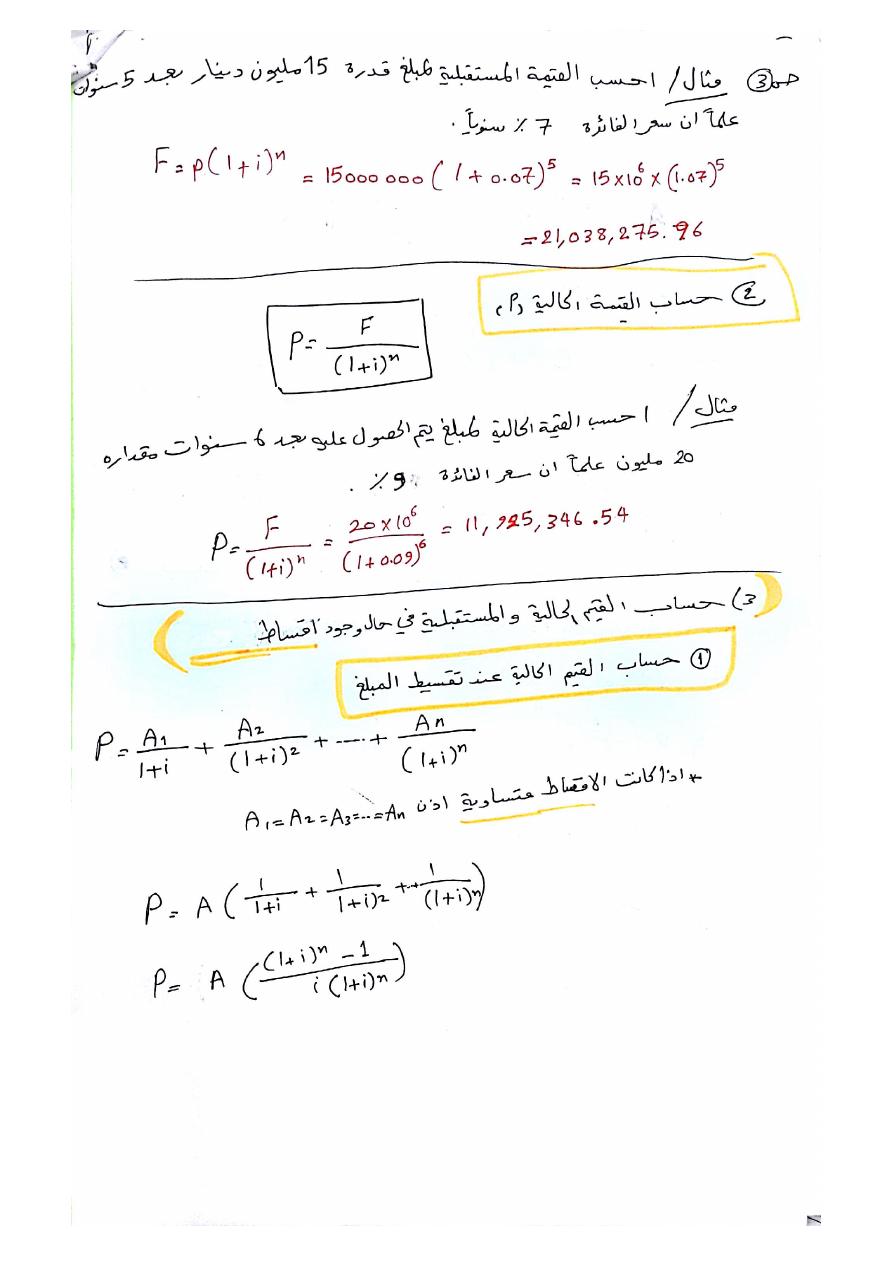 صـ ③ مثال / احسب القيمة المستقبلية لمبلغ قدرة 15 مليون دينار بعد 5 سنوات
علماً ان سعر الفائدة 7 ٪ سنوياً .
F = p(1+i)^n = 15000 000 (1 + 0.07)^5 = 15 x 10^6 x (1.07)^5
= 21,038,275.96
② حساب القيمة الحالية (P)
P = F / (1+i)^n
مثال / احسب القيمة الحالية لمبلغ يتم الحصول عليه بعد 6 سنوات مقداره
20 مليون علماً ان سعر الفائدة 9 ٪ .
P = F / (1+i)^n = 20 x 10^6 / (1+0.09)^6 = 11,925,346.54
3) حساب القيم الحالية والمستقبلية في حال وجود اقساط
① حساب القيم الحالية عند تقسيط المبلغ
P = A1 / 1+i + A2 / (1+i)^2 + ---- + An / (1+i)^n
* اذا كانت الاقساط متساوية اذن A1 = A2 = A3 = ... = An
P = A ( 1 / 1+i + 1 / 1+i)^2 + ..+ 1 / (1+i)^n )
P = A ( (1+i)^n - 1 / i (1+i)^n )